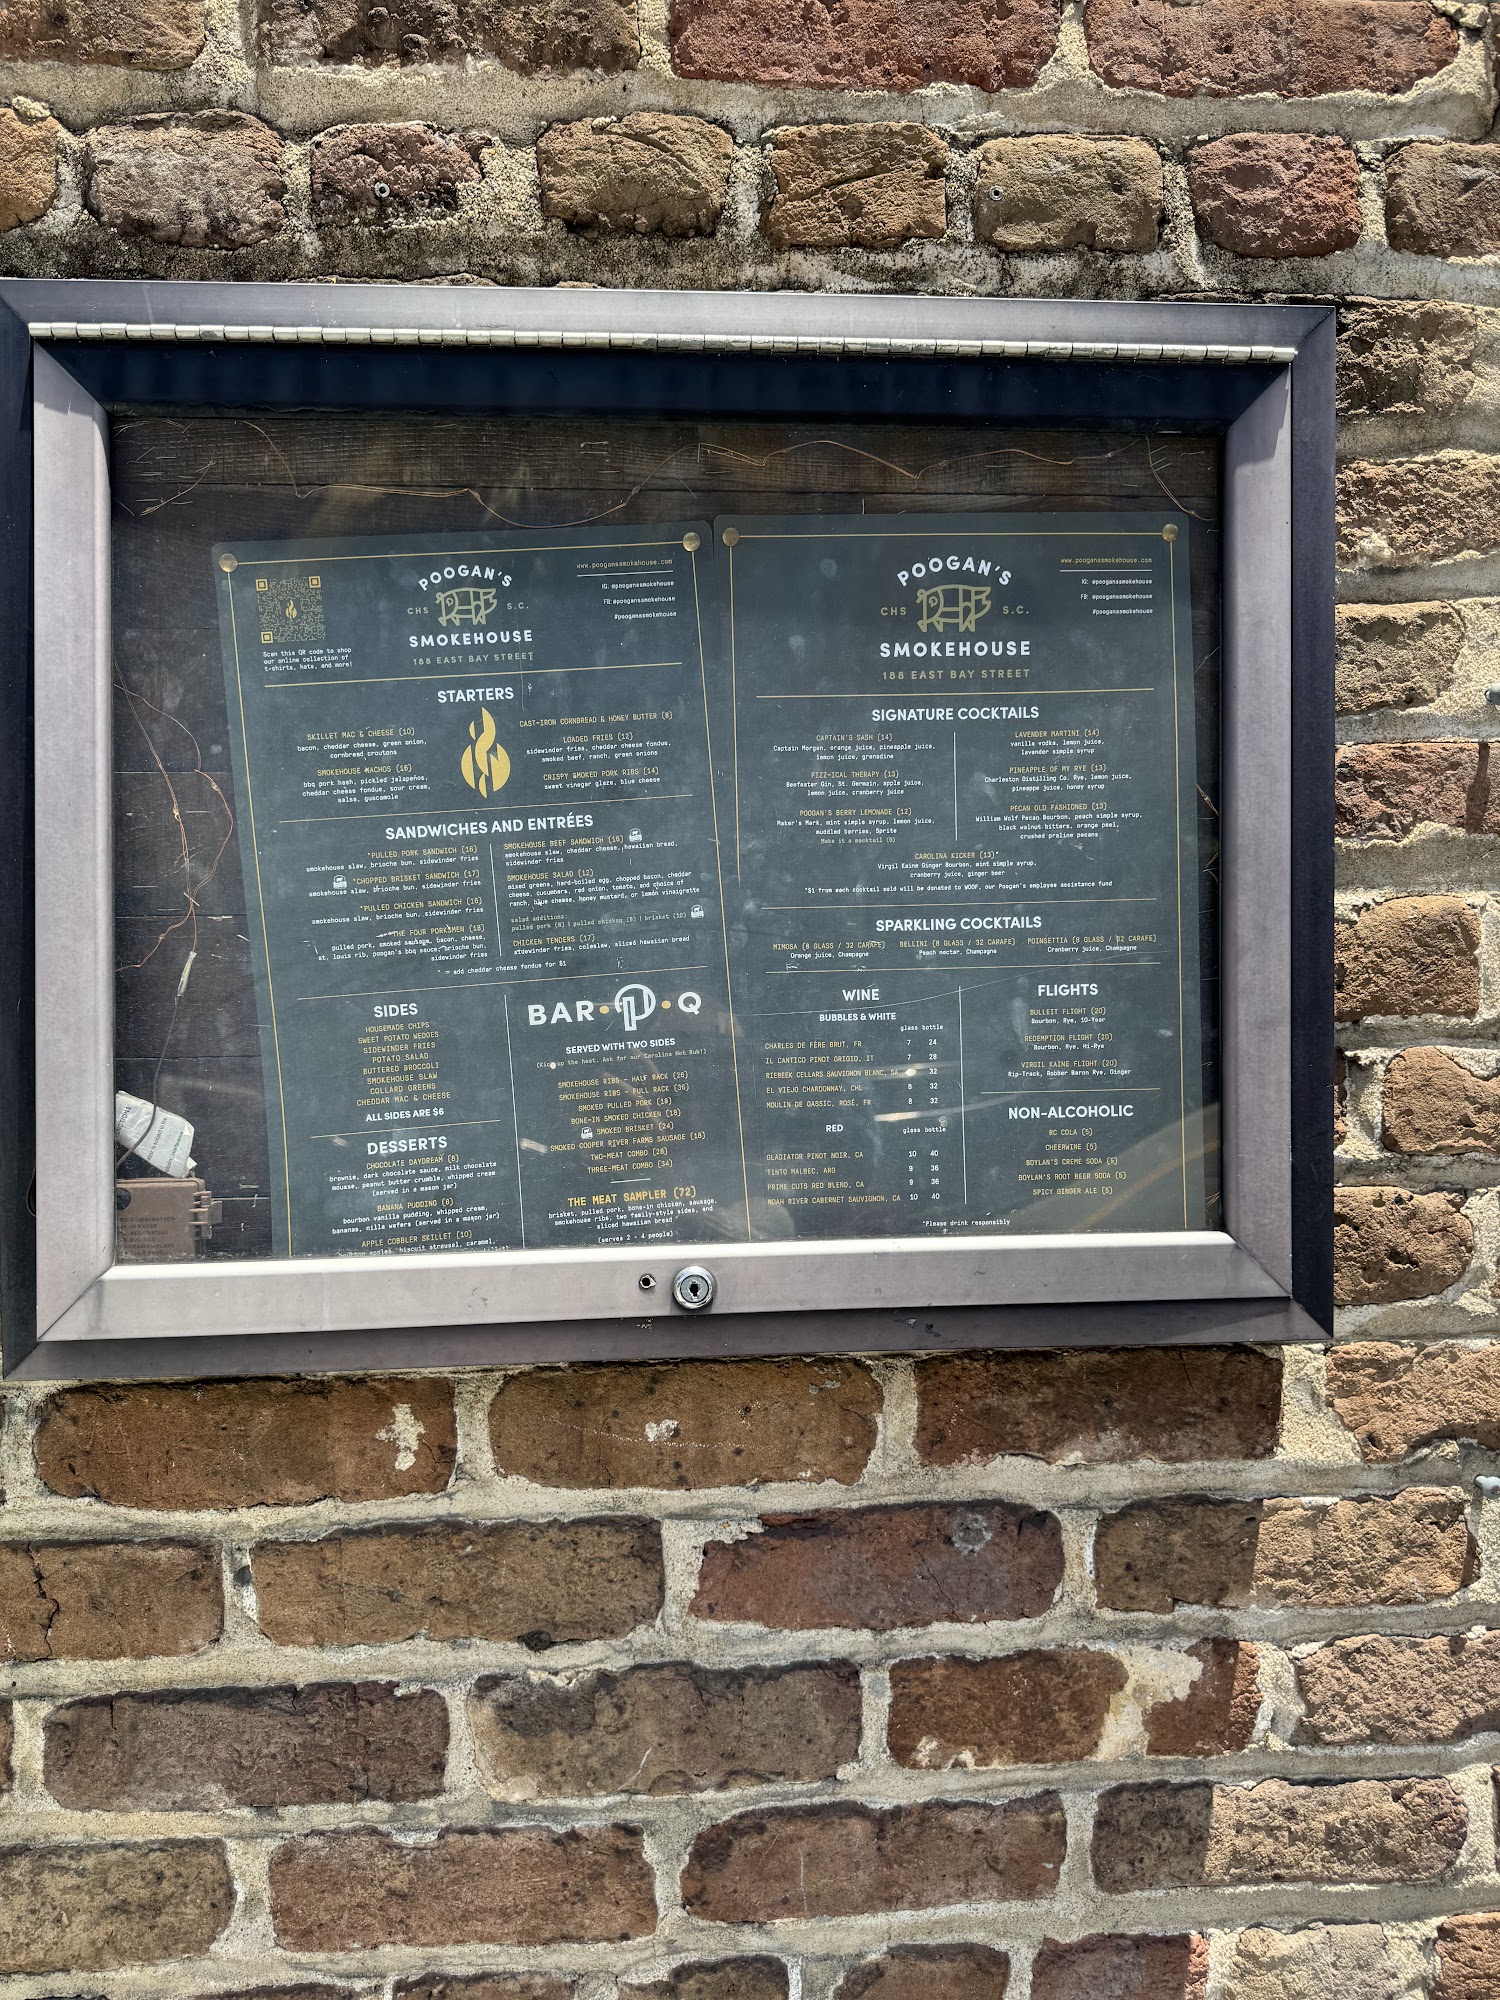 POOGAN'S
CHS S.C.
SMOKEHOUSE
188 EAST BAY STREET
www.pooganssmokehouse.com
IG: @pooganssmokehouse
FB: @pooganssmokehouse
#pooganssmokehouse
Scan this QR code to shop
our online collection of
t-shirts, hats, and more!
STARTERS
SKILLET MAC & CHEESE (10)
bacon, cheddar cheese, green onion,
cornbread croutons
SMOKEHOUSE NACHOS (16)
bbq pork hash, pickled jalapeños,
cheddar cheese fondue, sour cream,
salsa, guacamole
CAST-IRON CORNBREAD & HONEY BUTTER (8)
LOADED FRIES (12)
sidewinder fries, cheddar cheese fondue,
smoked beef, ranch, green onions
CRISPY SMOKED PORK RIBS (14)
sweet vinegar glaze, blue cheese
SANDWICHES AND ENTRÉES
*PULLED PORK SANDWICH (16)
smokehouse slaw, brioche bun, sidewinder fries
*CHOPPED BRISKET SANDWICH (17)
smokehouse slaw, brioche bun, sidewinder fries
*PULLED CHICKEN SANDWICH (16)
smokehouse slaw, brioche bun, sidewinder fries
THE FOUR PORKSMEN (18)
pulled pork, smoked sausage, bacon, cheese,
st. louis rib, poogan's bbq sauce, brioche bun,
sidewinder fries
SMOKEHOUSE BEEF SANDWICH (16)
smokehouse slaw, cheddar cheese, hawaiian bread,
sidewinder fries
SMOKEHOUSE SALAD (12)
mixed greens, hard-boiled egg, chopped bacon, cheddar
cheese, cucumbers, red onion, tomato, and choice of
ranch, blue cheese, honey mustard, or lemon vinaigrette
salad additions:
pulled pork (8) | pulled chicken (8) | brisket (10)
CHICKEN TENDERS (17)
sidewinder fries, coleslaw, sliced hawaiian bread
* = add cheddar cheese fondue for $1
SIDES
HOUSEMADE CHIPS
SWEET POTATO WEDGES
SIDEWINDER FRIES
POTATO SALAD
BUTTERED BROCCOLI
SMOKEHOUSE SLAW
COLLARD GREENS
CHEDDAR MAC & CHEESE
ALL SIDES ARE $6
DESSERTS
CHOCOLATE DAYDREAM (8)
brownie, dark chocolate sauce, milk chocolate
mousse, peanut butter crumble, whipped cream
(served in a mason jar)
BANANA PUDDING (8)
bourbon vanilla pudding, whipped cream,
bananas, nilla wafers (served in a mason jar)
APPLE COBBLER SKILLET (10)
bourbon apples, biscuit streusel, caramel,
BAR•P•Q
SERVED WITH TWO SIDES
(Kick up the heat. Ask for our Carolina Hot Rub!)
SMOKEHOUSE RIBS - HALF RACK (26)
SMOKEHOUSE RIBS - FULL RACK (36)
SMOKED PULLED PORK (18)
BONE-IN SMOKED CHICKEN (18)
SMOKED BRISKET (24)
SMOKED COOPER RIVER FARMS SAUSAGE (18)
TWO-MEAT COMBO (28)
THREE-MEAT COMBO (34)
THE MEAT SAMPLER (72)
brisket, pulled pork, bone-in chicken, sausage,
smokehouse ribs, two family-style sides, and
sliced hawaiian bread
(serves 2 - 4 people)
POOGAN'S
CHS S.C.
SMOKEHOUSE
188 EAST BAY STREET
www.pooganssmokehouse.com
IG: @pooganssmokehouse
FB: @pooganssmokehouse
#pooganssmokehouse
SIGNATURE COCKTAILS
CAPTAIN'S SASH (14)
Captain Morgan, orange juice, pineapple juice,
lemon juice, grenadine
FIZZ-ICAL THERAPY (13)
Beefeater Gin, St. Germain, apple juice,
lemon juice, cranberry juice
POOGAN'S BERRY LEMONADE (12)
Maker's Mark, mint simple syrup, lemon juice,
muddled berries, Sprite
Make it a mocktail (8)
LAVENDER MARTINI (14)
vanilla vodka, lemon juice,
lavender simple syrup
PINEAPPLE OF MY RYE (13)
Charleston Distilling Co. Rye, lemon juice,
pineapple juice, honey syrup
PECAN OLD FASHIONED (13)
William Wolf Pecan Bourbon, peach simple syrup,
black walnut bitters, orange peel,
crushed praline pecans
CAROLINA KICKER (13)*
Virgil Kaine Ginger Bourbon, mint simple syrup,
cranberry juice, ginger beer
*$1 from each cocktail sold will be donated to WOOF, our Poogan's employee assistance fund
SPARKLING COCKTAILS
MIMOSA (8 GLASS / 32 CARAFE)
Orange juice, Champagne
BELLINI (8 GLASS / 32 CARAFE)
Peach nectar, Champagne
POINSETTIA (8 GLASS / 32 CARAFE)
Cranberry juice, Champagne
WINE
BUBBLES & WHITE
glass bottle
CHARLES DE FÈRE BRUT, FR 7 24
IL CANTICO PINOT GRIGIO, IT 7 28
RIEBEEK CELLARS SAUVIGNON BLANC, SA 32
EL VIEJO CHARDONNAY, CHL 8 32
MOULIN DE GASSIC, ROSÉ, FR 8 32
RED
glass bottle
GLADIATOR PINOT NOIR, CA 10 40
TINTO MALBEC, ARG 9 36
PRIME CUTS RED BLEND, CA 9 36
NOAH RIVER CABERNET SAUVIGNON, CA 10 40
FLIGHTS
BULLEIT FLIGHT (20)
Bourbon, Rye, 10-Year
REDEMPTION FLIGHT (20)
Bourbon, Rye, Hi-Rye
VIRGIL KAINE FLIGHT (20)
Rip-Track, Robber Baron Rye, Ginger
NON-ALCOHOLIC
RC COLA (5)
CHEERWINE (5)
BOYLAN'S CREME SODA (5)
BOYLAN'S ROOT BEER SODA (5)
SPICY GINGER ALE (5)
*Please drink responsibly